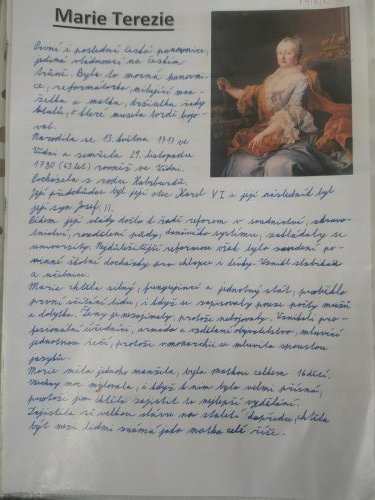 Marie Terezie
První i poslední česká panovnice,
jediná vládnoucí na českém
trůně. Byla to mocná panovni-
ce, reformátorka, milující man-
želka a matka, držitelka řady
titulů, o které musela tvrdě bojo-
vat.
Narodila se 13. května 1717 ve
Vídni a zemřela 29. listopadu
1780 (63 let) rovněž ve Vídni.
Pocházela z rodu Habsburků.
Její předchůdce byl její otec Karel VI a její následník byl
její syn Josef II.
Během její vlády došlo k řadě reforem v soudnictví, zdravo-
tnictví, rozdělení půdy, daňového systému, zakládaly se
univerzity. Nejdůležitější reformou však bylo zavedení po-
vinné školní docházky pro chlapce i dívky. Vznikl slabikář
a učebnice.
Marie chtěla silný, fungující a jednotný stát, proběhlo
první sčítání lidu, i když se zapisovaly pouze počty mužů
a dobytka. Ženy je nezajímaly, protože nebojovaly. Vznikli pro-
fesionální úředníci, armáda a vzdělané obyvatelstvo, mluvící
jednotnou řečí, protože v monarchii se mluvilo spoustou
jazyků.
Marie měla jednoho manžela, byla matkou celkem 16 dětí.
Všechny moc milovala, i když k nim byla velmi přísná,
protože jim chtěla zajistit to nejlepší vzdělání.
Zajistila si velkou slávu na staletí dopředu, chtěla
být mezi lidmi známá jako matka celé říše.